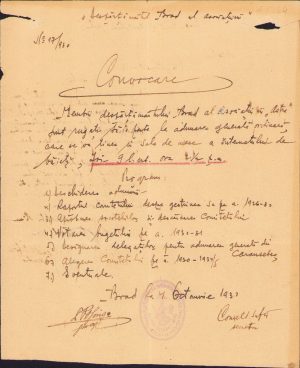 "Despărțămîntul Brad al asociațiunii"
No 17/930
Convocare
Membrii despărțământului Brad al Asociațiunii "Astra"
sunt rugați a lua parte la adunarea generală ordinară,
care se va ținea în Sala de mese a internatului de
băieți, Joi 9 l. crt. ora 8 1/2 s.a.
Program:
1) Deschiderea adunării
2) Raportul comitetului despre gestiunea sa pe a. 1926-30
3) Aprobarea socotelilor și descărcarea Comitetului
4) Votarea bugetului pe a. 1930-31
5) Designarea delegaților pentru adunarea generală din Caransebeș
6) Alegerea Comitetului pe a. 1930-1935
7) Eventuale.
Brad la 4 Octomvrie 1930